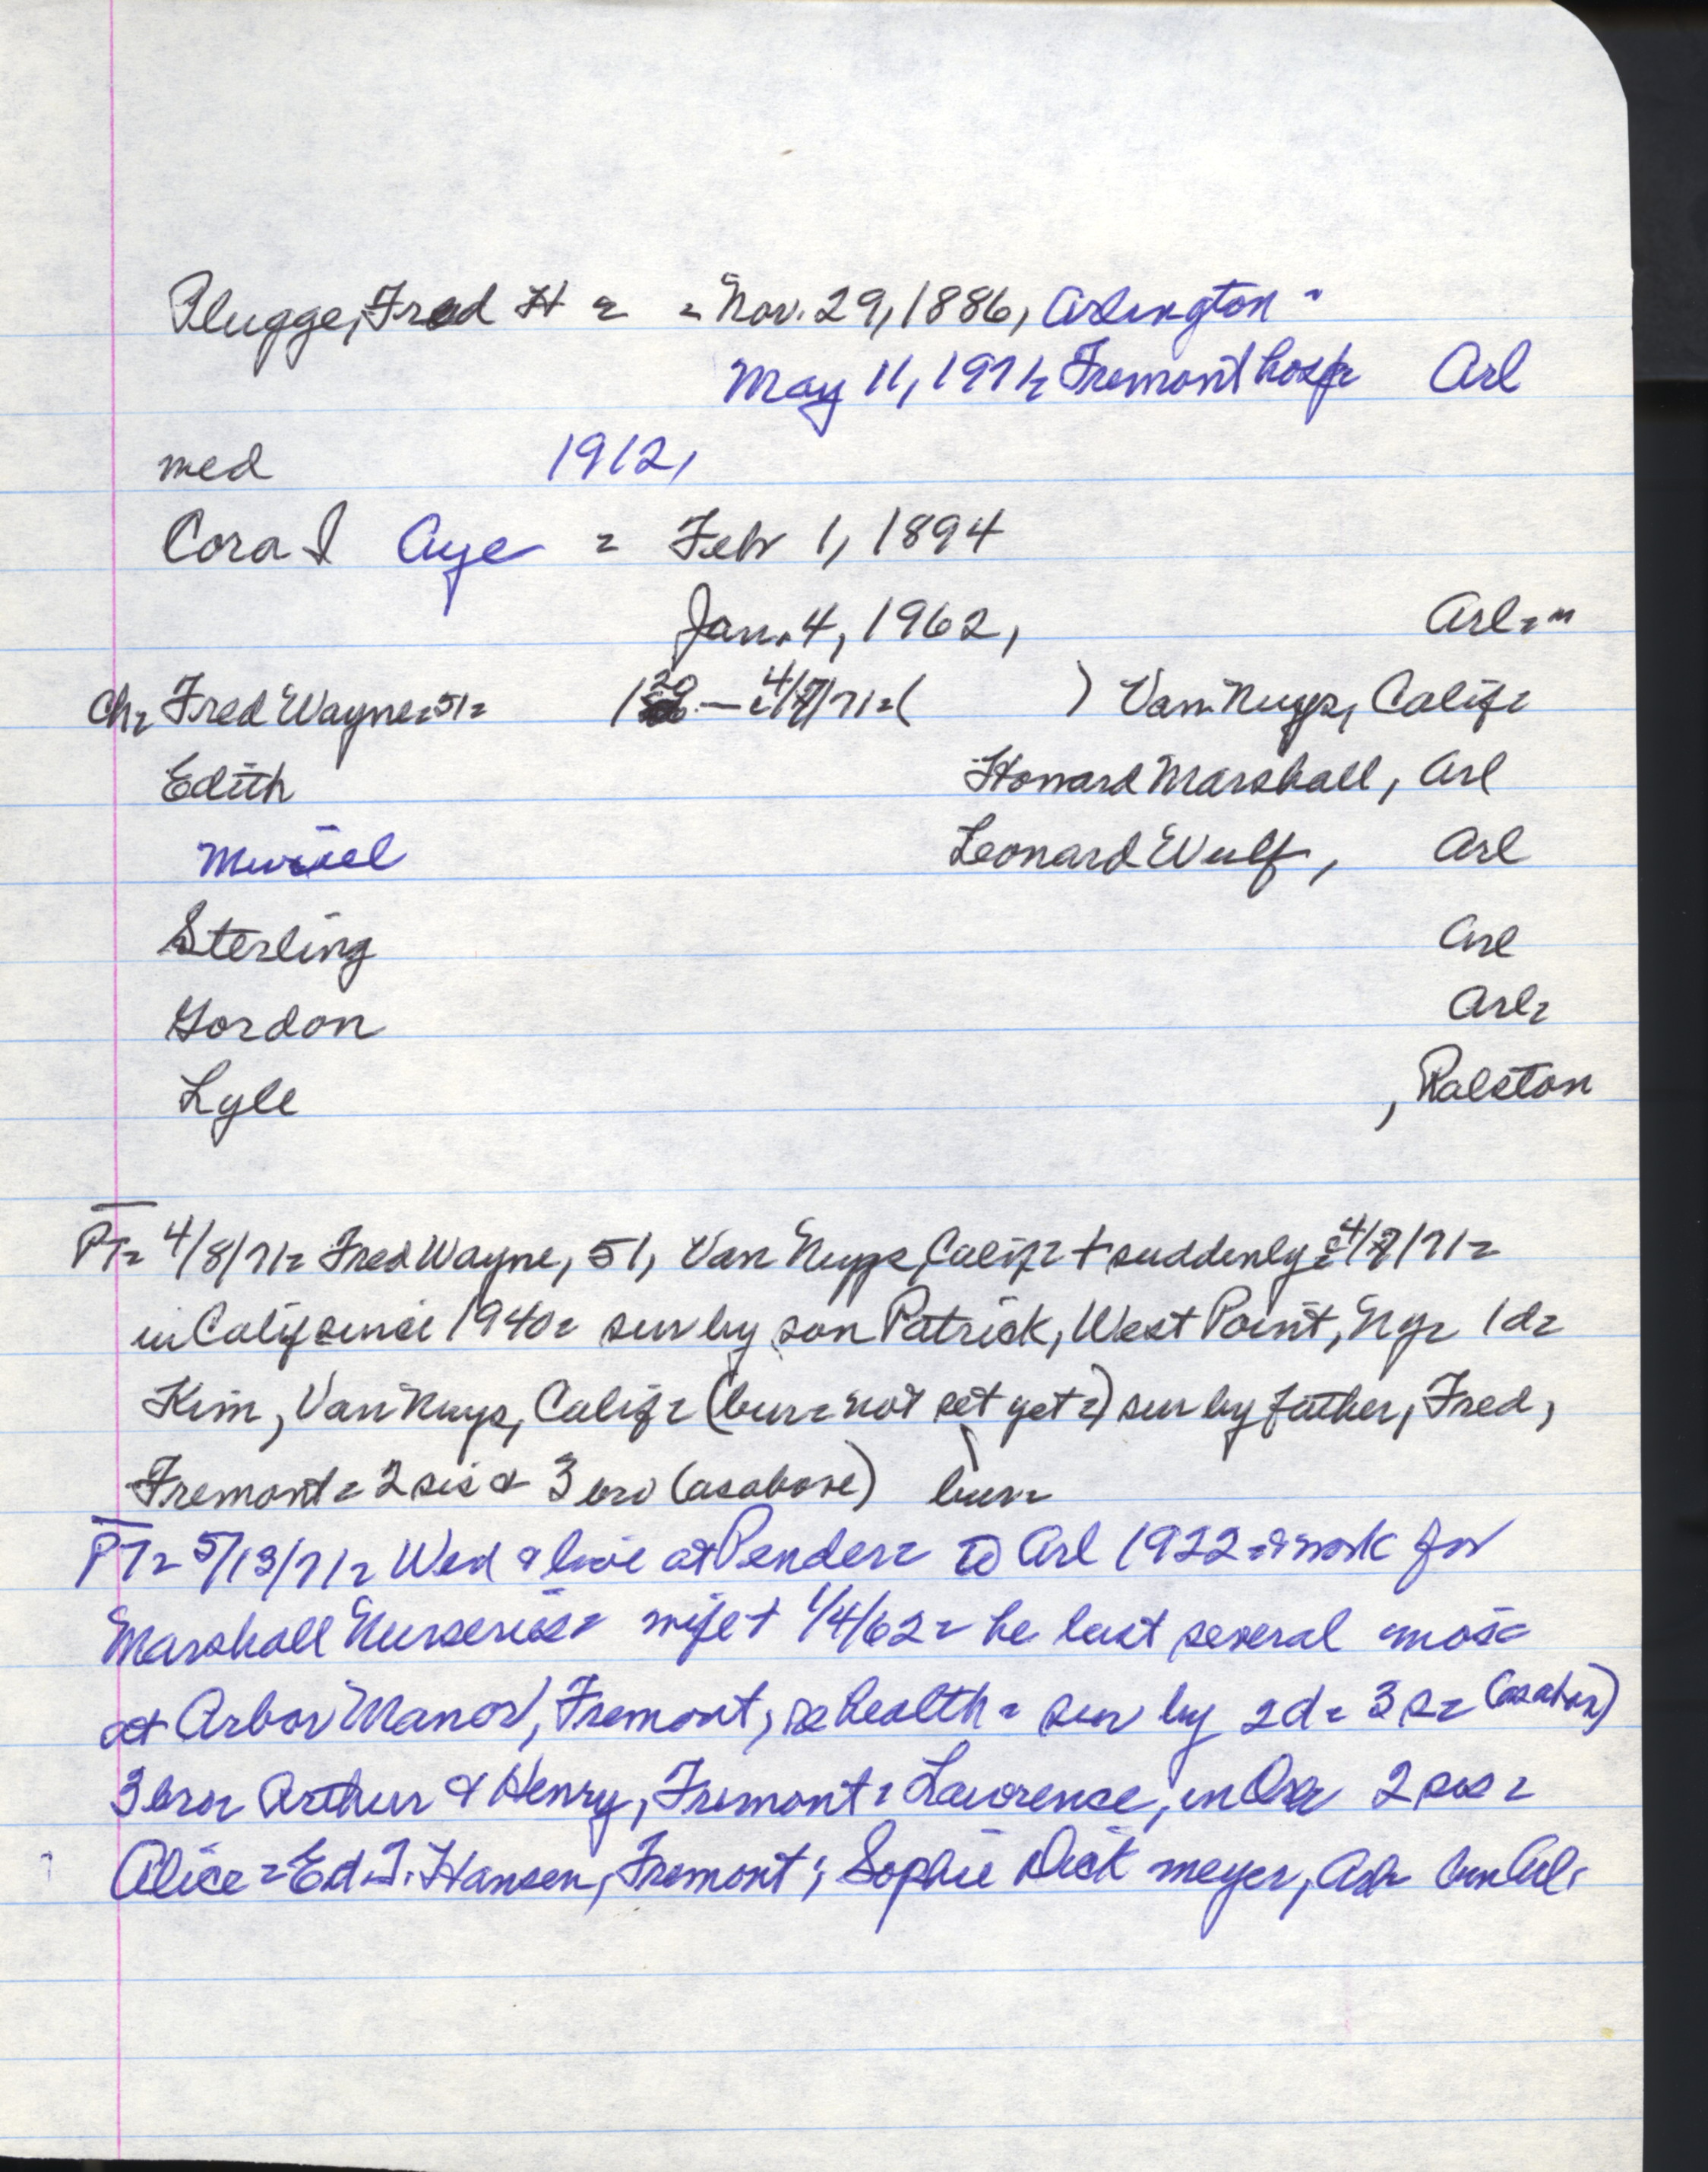 Plugge, Fred H = = Nov. 29, 1886, Arlington -
May 11, 1971, Fremont hosp= Arl
med 1912,
Cora I Aye = Feb 1, 1894
Jan. 4, 1962, Arl="
Ch= Fred Wayne=51= 1920 — 4/7/71=( ) Van Nuys, Calif=
Edith Howard Marshall, Arl
Muriel Leonard Wulf, Arl
Sterling Arl
Gordon Arl=
Lyle , Ralston
PT= 4/8/71= Fred Wayne, 51, Van Nuys, Calif= + suddenly = 4/7/71=
in Calif since 1940= sur by son Patrick, West Point, Ny= 1d=
Kim, Van Nuys, Calif= (bur= not set yet=) sur by father, Fred,
Fremont= 2 sis & 3 bro (as above) bur=
PT= 5/13/71= Wed & live at Pender= to Arl 1922= work for
Marshall Nurseries= wife + 1/4/62= he last several mos=
at Arbor Manor, Fremont, health= sur by 2d= 3s= (as above)
3 bro= Arthur & Henry, Fremont= Lawrence, in 2 sis=
Alice= Ed J. Hansen, Fremont; Sophie Dick meyer, bur Arl.